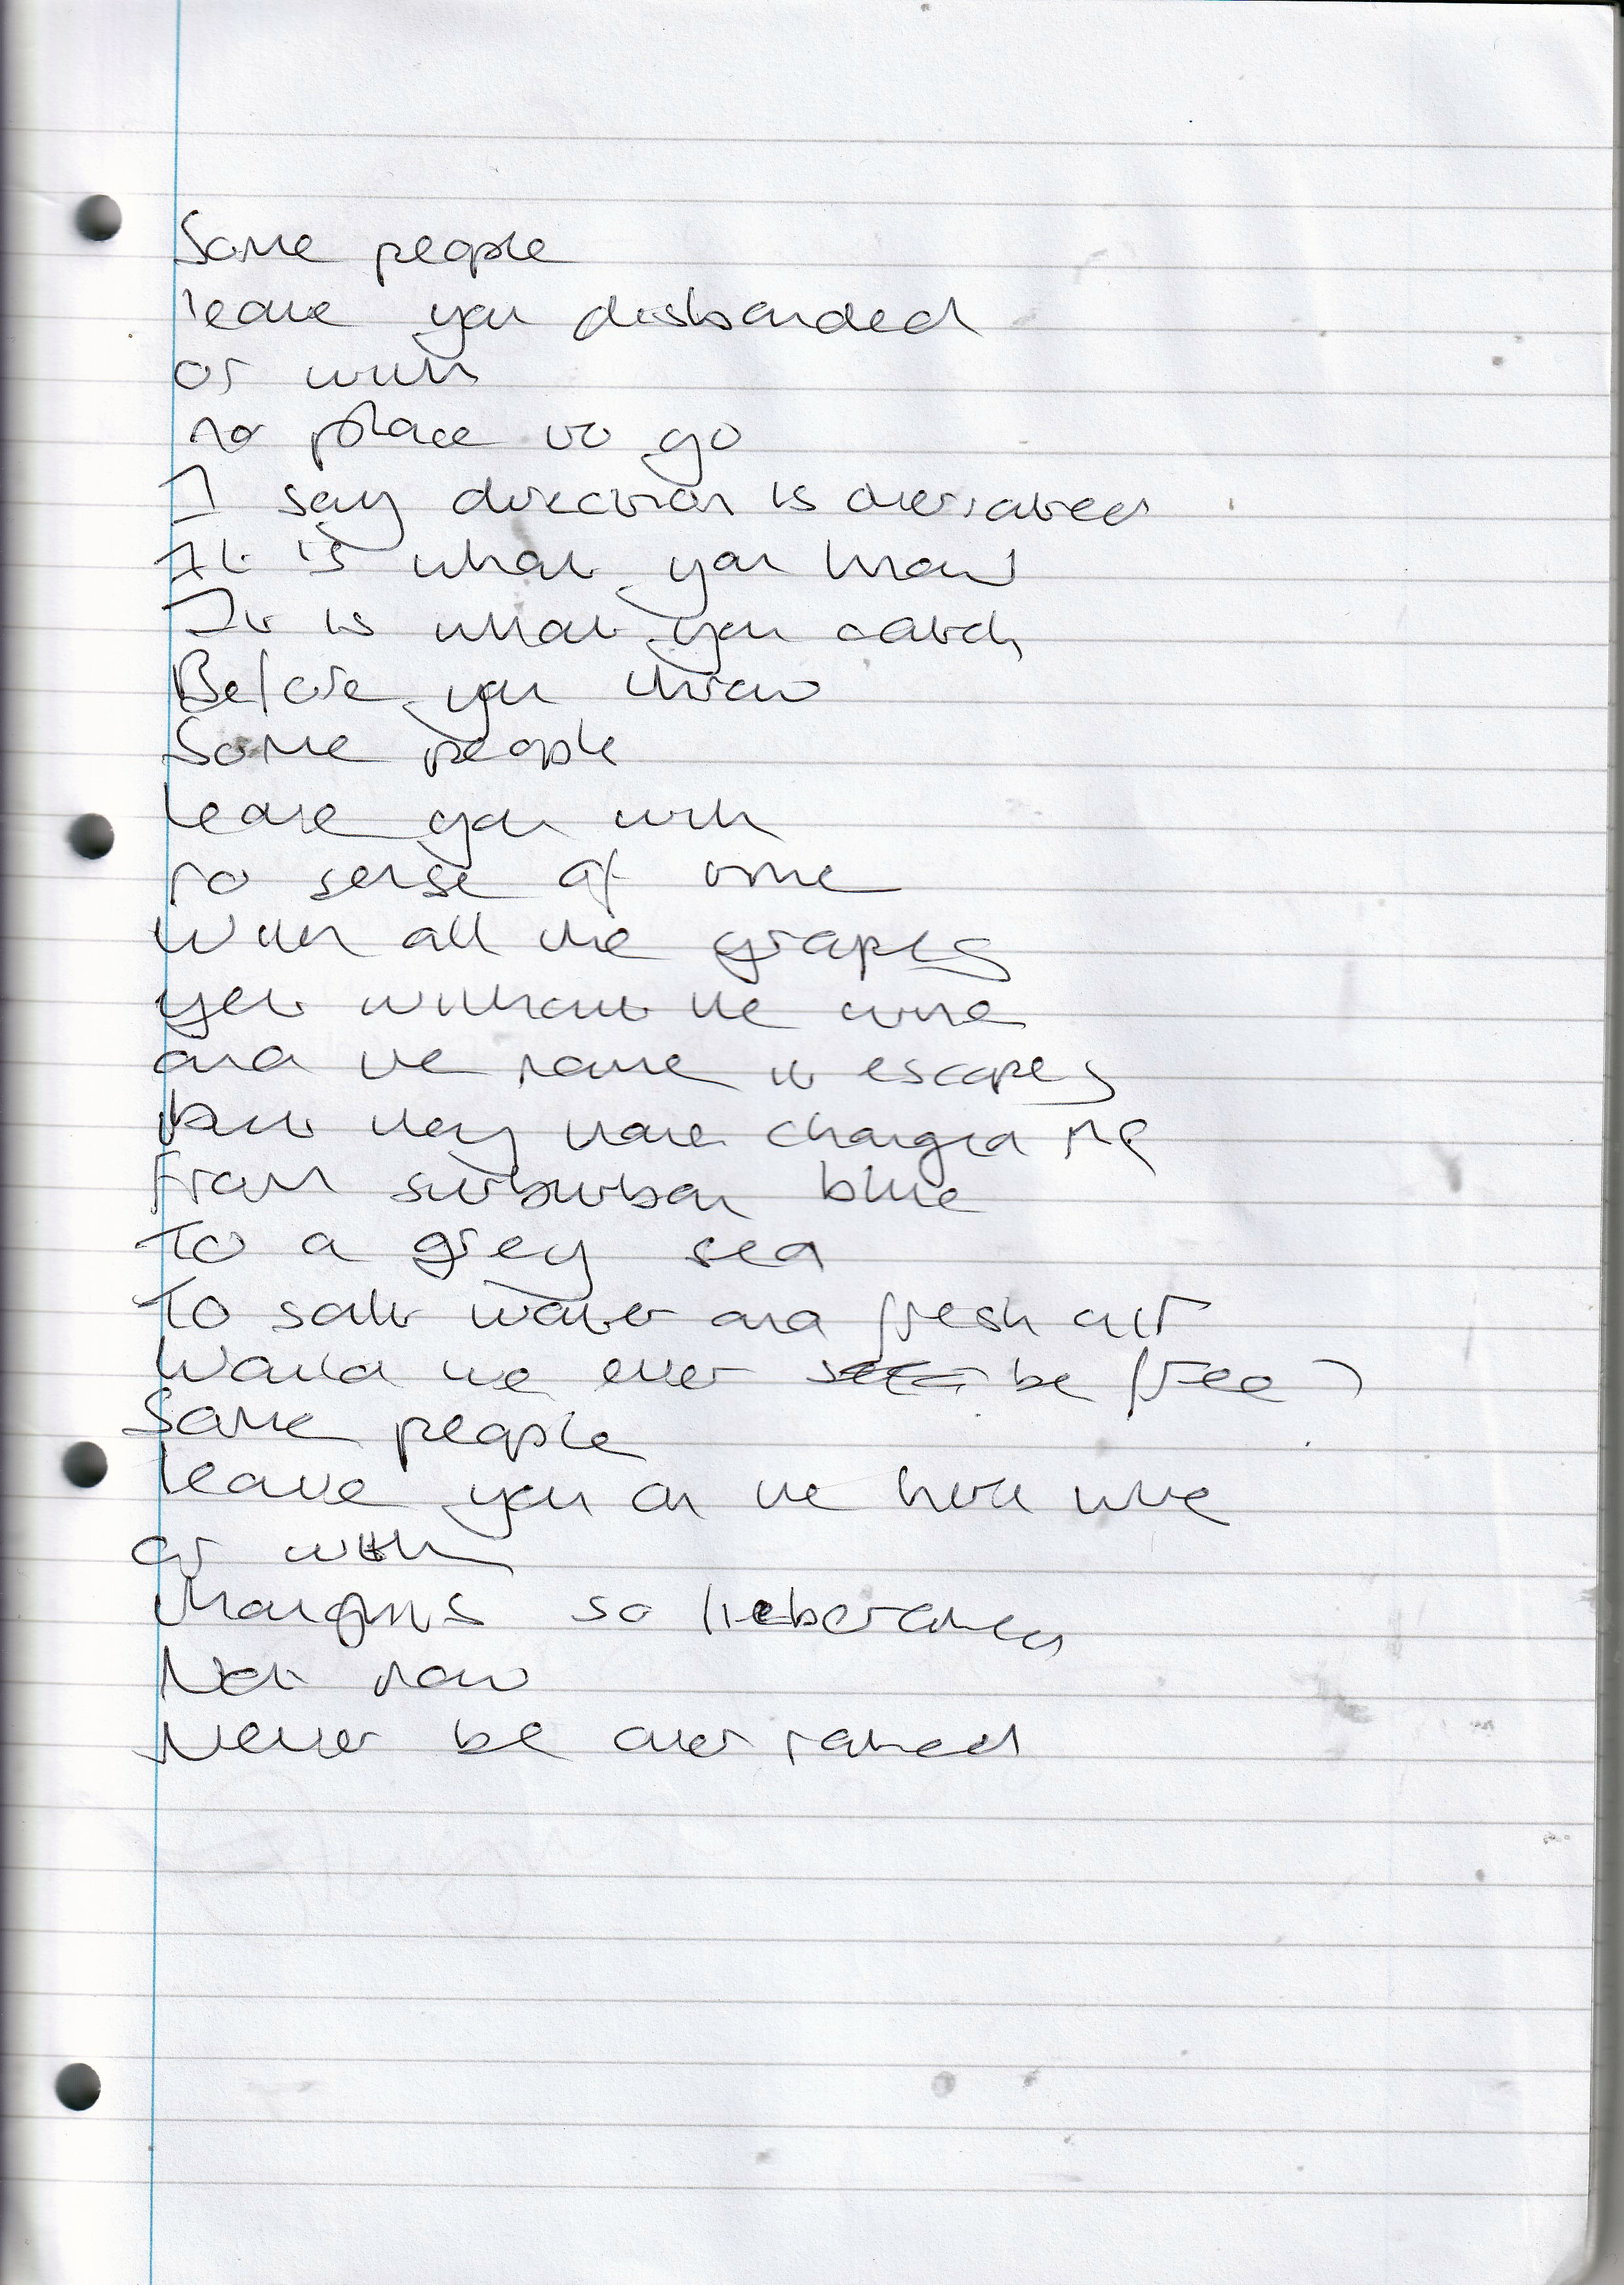 Some people
leave you disbanded
or with
no place to go
I say direction is overrated
It is what you know
It is what you catch
Before you throw
Some people
leave you with
no sense of time
With all the grapes
yet without the wine
and the name it escapes
but they have changed me
From surburban blue
To a grey sea
To salt water and fresh air
Would we ever be free
Some people
leave you on the
or with
thoughts so lieberated
Not now
Never be over rated